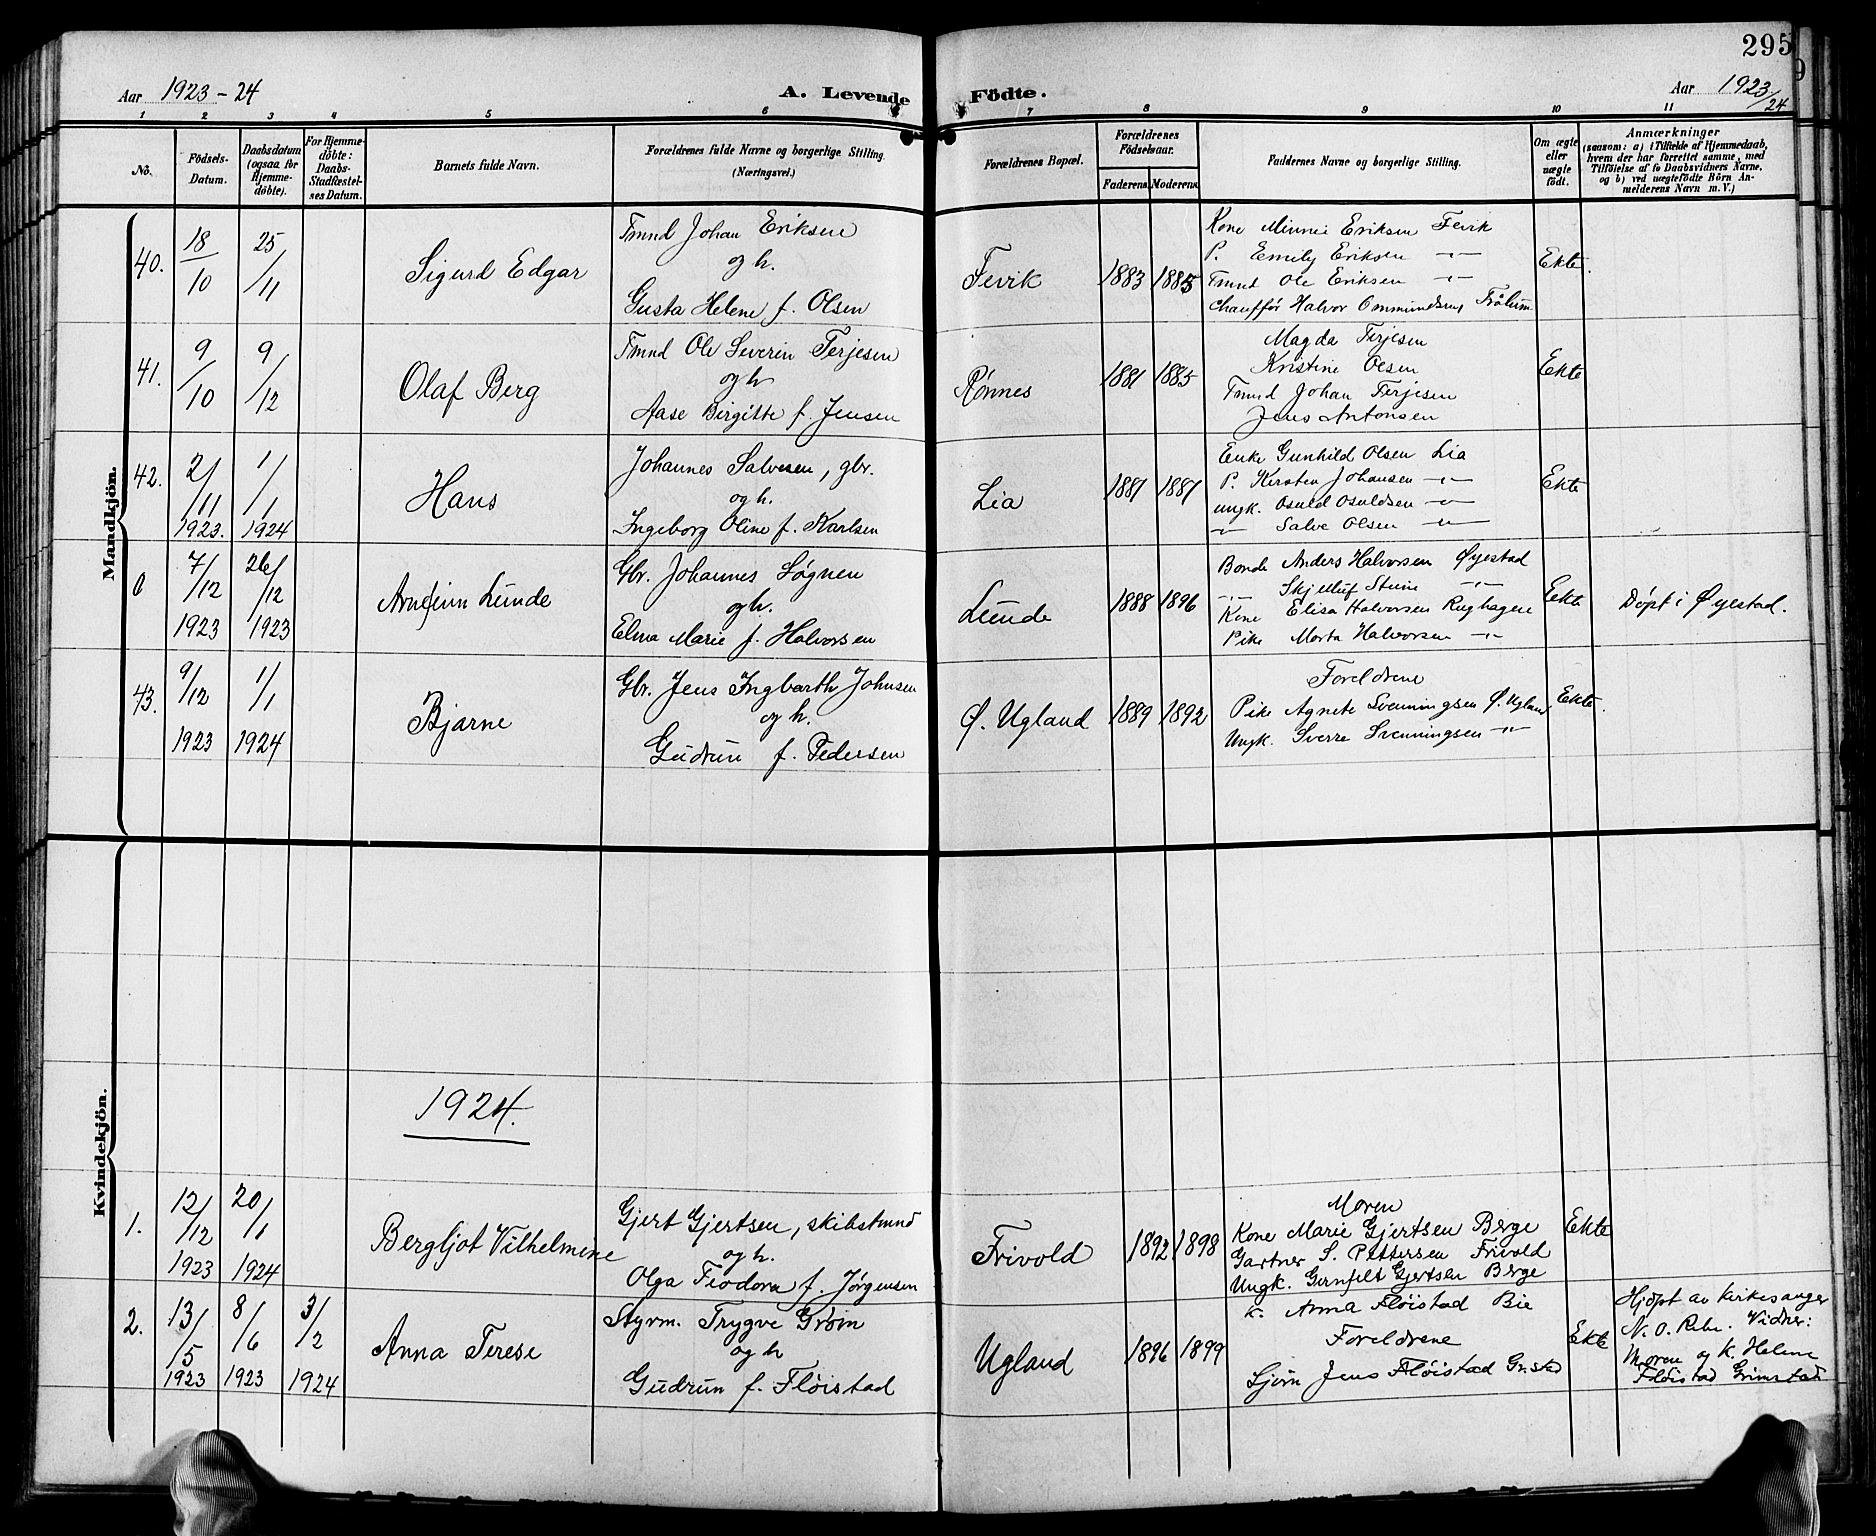 295
Aar 1923-24
A. Levende Födte.
Aar 1923/24
1 2 3 4 5 6 7 8 9 10 11
No.
Födsels-Datum.
Daabsdatum (ogsaa for Hjemmedöbte).
For Hjemmedöbte: Daabs-Stadfæstelses Datum.
Barnets fulde Navn.
Forældrenes fulde Navne og borgerlige Stilling. (Næringsvei.)
Forældrenes Bopæl.
Forældrenes Födselsaar.
Faderens. Moderens.
Faddernes Navne og borgerlige Stilling.
Om ægte eller uægte födt.
Anmærkninger
(saasom: a) i Tilfælde af Hjemmedaab,
hvem der har forrettet samme, med
Tilföielse af to Daabsvidners Navne,
og b) ved uægtefödte Börn An-
melderens Navn m. V.)
Mandkjön.
40. 18/10 25/11
Sigurd Edgar
Tmnd Johan Eriksen
og h.
Gusta Helene f. Olsen
Fevik 1883 1885
Kone Minnie Eriksen Fevik
P. Emily Eriksen -"-
Tmnd Ole Eriksen -"-
Chauffør Halvor Ommundsen,
Ekte.
41. 9/10 9/12
Olaf Berg
Tmnd Ole Severin Terjesen
og h
Aase Birgitte f. Jensen
Rønnes 1881 1885
Magda Terjesen
Kristine Olsen
Tmnd Johan Terjesen
Jens Antonsen
Ekte
42. 2/11 1923. 1/1 1924
Hans
Johannes Salvesen, gbr.
og h.
Ingeborg Oline f. Karlsen
Lia 1881 1881
Enke Gunhild Olsen Lia
P. Kirsten Johansen -"-
ungk. Osuld Osuldsen -"-
-"- Salve Olsen -"-
Ekte
0 7/12 1923 26/12 1923
Arnfinn Lunde
Gbr. Johannes Søgnen
og h.
Elma Marie f. Halvorsen
Lunde 1888 1896
Bonde Anders Halvorsen Øyestad
-"- Skjelluf Stene -"-
Kone Elisa Halvorsen Rughagen
Pike Marta Halvorsen -"-
Ekte
Døpt i Øyestad.
43. 9/12 1923 1/1 1924
Bjarne
Gbr. Jens Ingbarth Johnsen
og h.
Gudrun f. Pedersen
Ø. Ugland 1889 1892
Foreldrene
Pike Agnete Svenningsen Ø. Ugland
Ungk. Sverre Svenningsen -"-
Ekte.
Kvindekjön.
1924.
1. 12/12 1923 20/1 1924
Bergljot Vilhelmine
Gjert Gjertsen, skibstmnd
og h.
Olga Teodora f. Jørgensen
Frivold 1892 1898
Moren
Kone Marie Gjertsen Berge
Gartner S. Pettersen Frivold
Ungk. Gjertsen Berge
Ekte
2. 13/5 1923 8/6 1923 3/2 1924
Anna Terese
Styrm. Trygve Grøm
og h
Gudrun f. Fløistad
Ugland 1896 1899
K. Anna Fløistad Bie
Foreldrene
Sjøm Jens Fløistad Gr.stad
Ekte
Hjdøpt av kirkesanger
N. O. Vidner:
Moren og K. Helene
Fløistad Grimstad